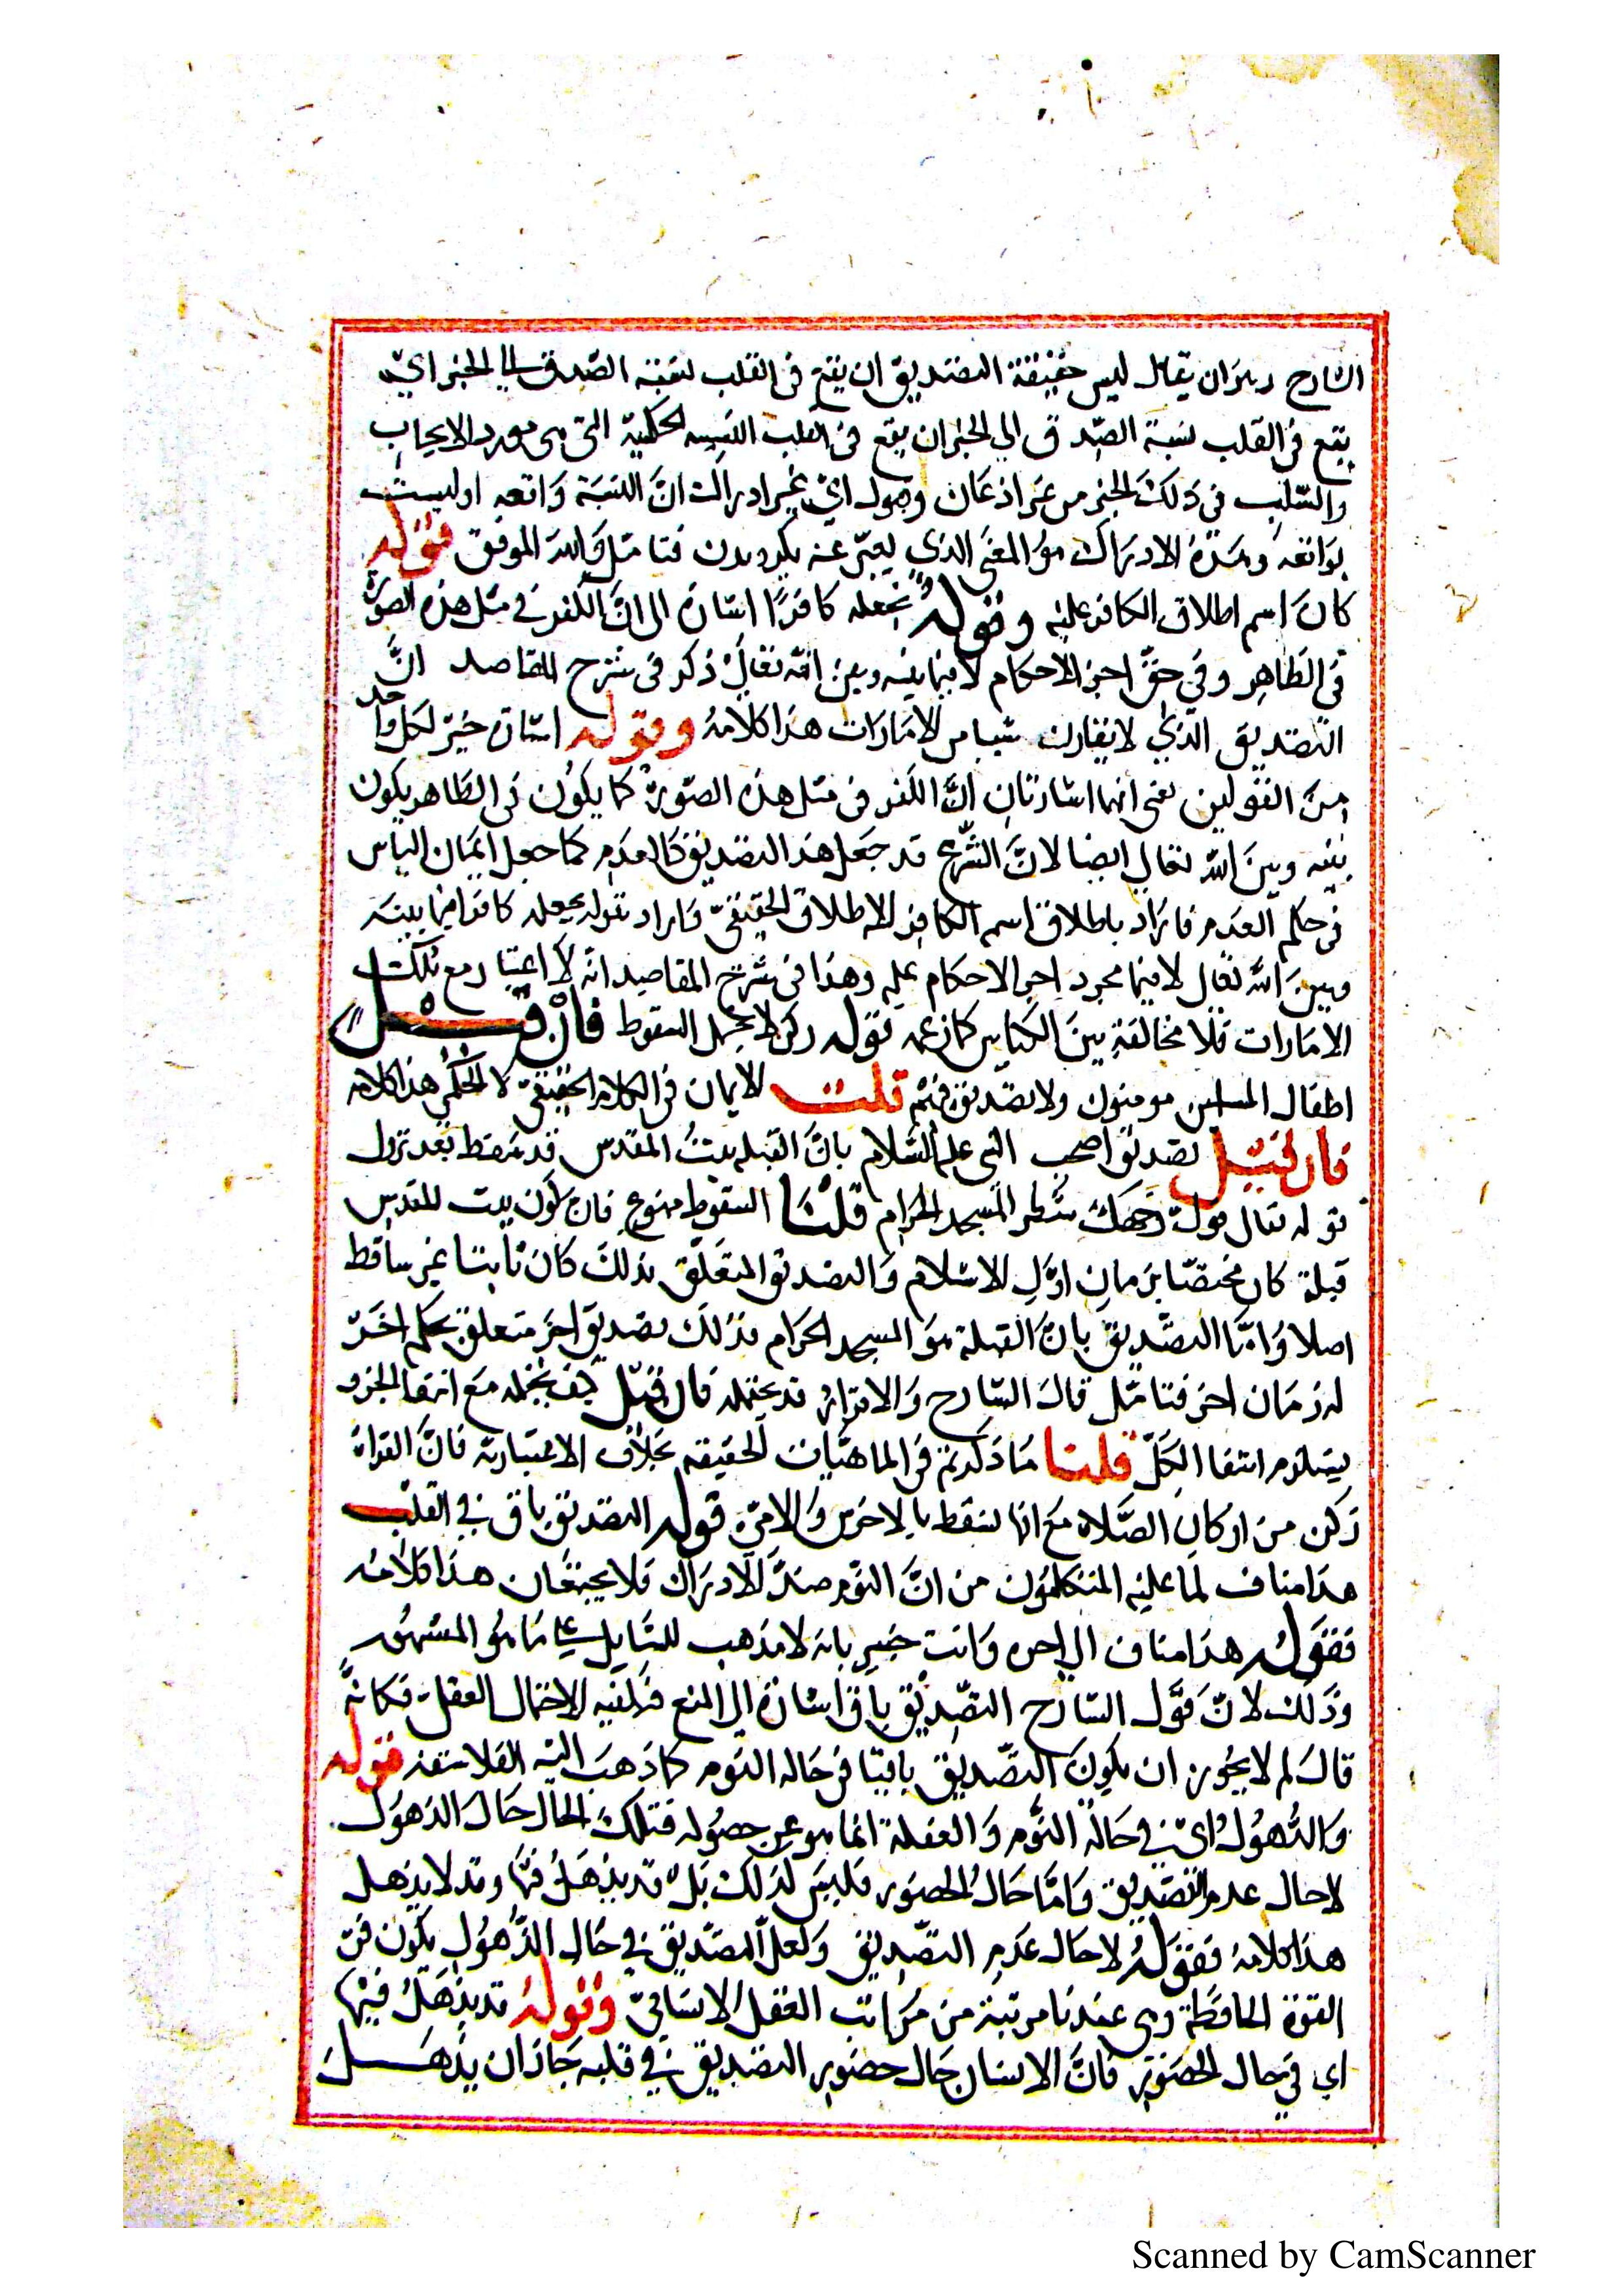 الشارح وهو ان يقال ليس حقيقة التصديق ان يقع فى القلب نسبة الصدق الى الخبر اى
يقع فى القلب نسبة الصدق الى الخبر ان يقع فى القلب النسبة الحكمية التى هى مورد الايجاب
والسلب فى ذلك الخبر من غير اذعان وقبول اى غير ادراك انّ النسبة واقعه اوليست
بواقعه وهذه الادراك هو المعنى الذى يعبّر عنه بكرويدن فتامّل والله الموفق قوله
كان اسم اطلاق الكافر عليه وقوله نجعله كافرًا اشارة الى انّ الكفر فى مثل هذه الصورة
فى الظاهر وفى حقّ اجرا الاحكام لا فيما بينه وبين الله تعالى ذكر فى شرح المقاصد انّ
التصديق الذى لا يقارن شيا من الامارات هذا كلامه وقوله اشارة خبر لكل واحد
من القولين يعنى انهما اشارتان انّ الكفر فى مثل هذه الصّورة كما يكون فى الظاهر يكون
بينه وبين الله تعالى ايضا لانّ الشّرع قد جعل هذا التصديق كالعدم كما جعل ايمان الياس
فى حكم العدم فاراد باطلاق اسم الكافر الاطلاق الحقيقىّ واراد بقوله نجعله كافرا فيما بينه
وبين الله تعالى لا فيما مجرد اجرا الاحكام عليه وهذا فى شرح المقاصد انّه لا اعتبار مع تلك
الامارات فلا مخالفة بين الكتابين كما زعمه قوله ركن لا يحتمل السقوط فان قيل
اطفال المسلمين مومنون ولا تصديق فيهم قلت الايمان فى الكلام الحقيقى لا الحكمى هذا كلامه
فان قيل تصديق اصحب النبى عليه السّلام بانّ القبله بيت المقدس قد سقط بعد نزول
قوله تعالى فولّ وجهك شطر المسجد الحرام قلنا السقوط ممنوع فان كون بيت المقدس
قبلة كان مختصّا بزمان اوّل الاسلام والتصديق المتعلّق بذلك كان ثابتا غير ساقط
اصلا وامّا التصّديق بانّ القبلة هو المسجد الحرام فذلك تصديق اخر متعلق بحكم اخر
له زمان اخر فتامّل قال الشارح والاقرار قد يحتمله فان قيل كيف يحتمله مع انتفا الجزو
يستلزم انتفا الكلّ قلنا ما ذكرتم فى الماهيّات الحقيقه بخلاف الاعتباريّة فانّ القراة
ركن من اركان الصّلاة مع انها تسقط بالاخرس والامىّ قوله التصديق باق فى القلب
هذا مناف لما عليه المتكلمون من انّ النوم ضدّ الادراك فلا يجتمعان هذا كلامه
فقوله هذا مناف الى اخره وانت خبير بانه لا مذهب للسّايل على ما هو المشهور
وذلك لانّ قول الشارح التصّديق باق اشارة الى المنع فيكفيه الاحتمال العقلى فكانّه
قال لم لا يجوز ان يكون التصّديق باقيا فى حاله النوم كما ذهب اليه الفلاسفه قوله
والذّهول اى فى حالة النّوم والغفلة انما هو عن حصوله فتلك الحال حال الذهول
لا حال عدم التصّديق وامّا حال الحضور فليس لذلك بل قد يذهل فيها وقد لا يذهل
هذا كلامه فقوله لا حال عدم التصّديق ولعلّ التصّديق فى حال الذّهول يكون فى
القوّة الحافظة وهى عندنا مرتبة من مراتب العقل الانسانىّ وقوله قد يذهل فيها
اى فى حال الحضور فانّ الانسان حال حضور التصديق فى قلبه جاز ان يذهل
Scanned by CamScanner